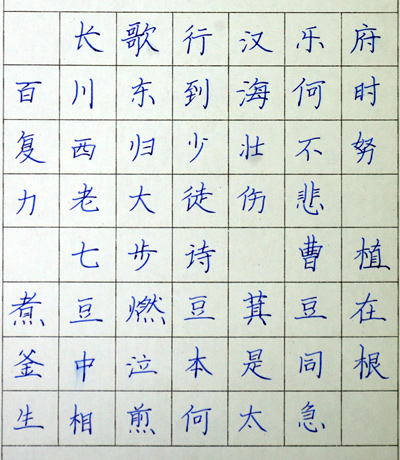 长歌行汉乐府
百川东到海何时
复西归少壮不努
力老大徒伤悲
七步诗 曹植
煮豆燃豆萁豆在
釜中泣本是同根
生相煎何太急